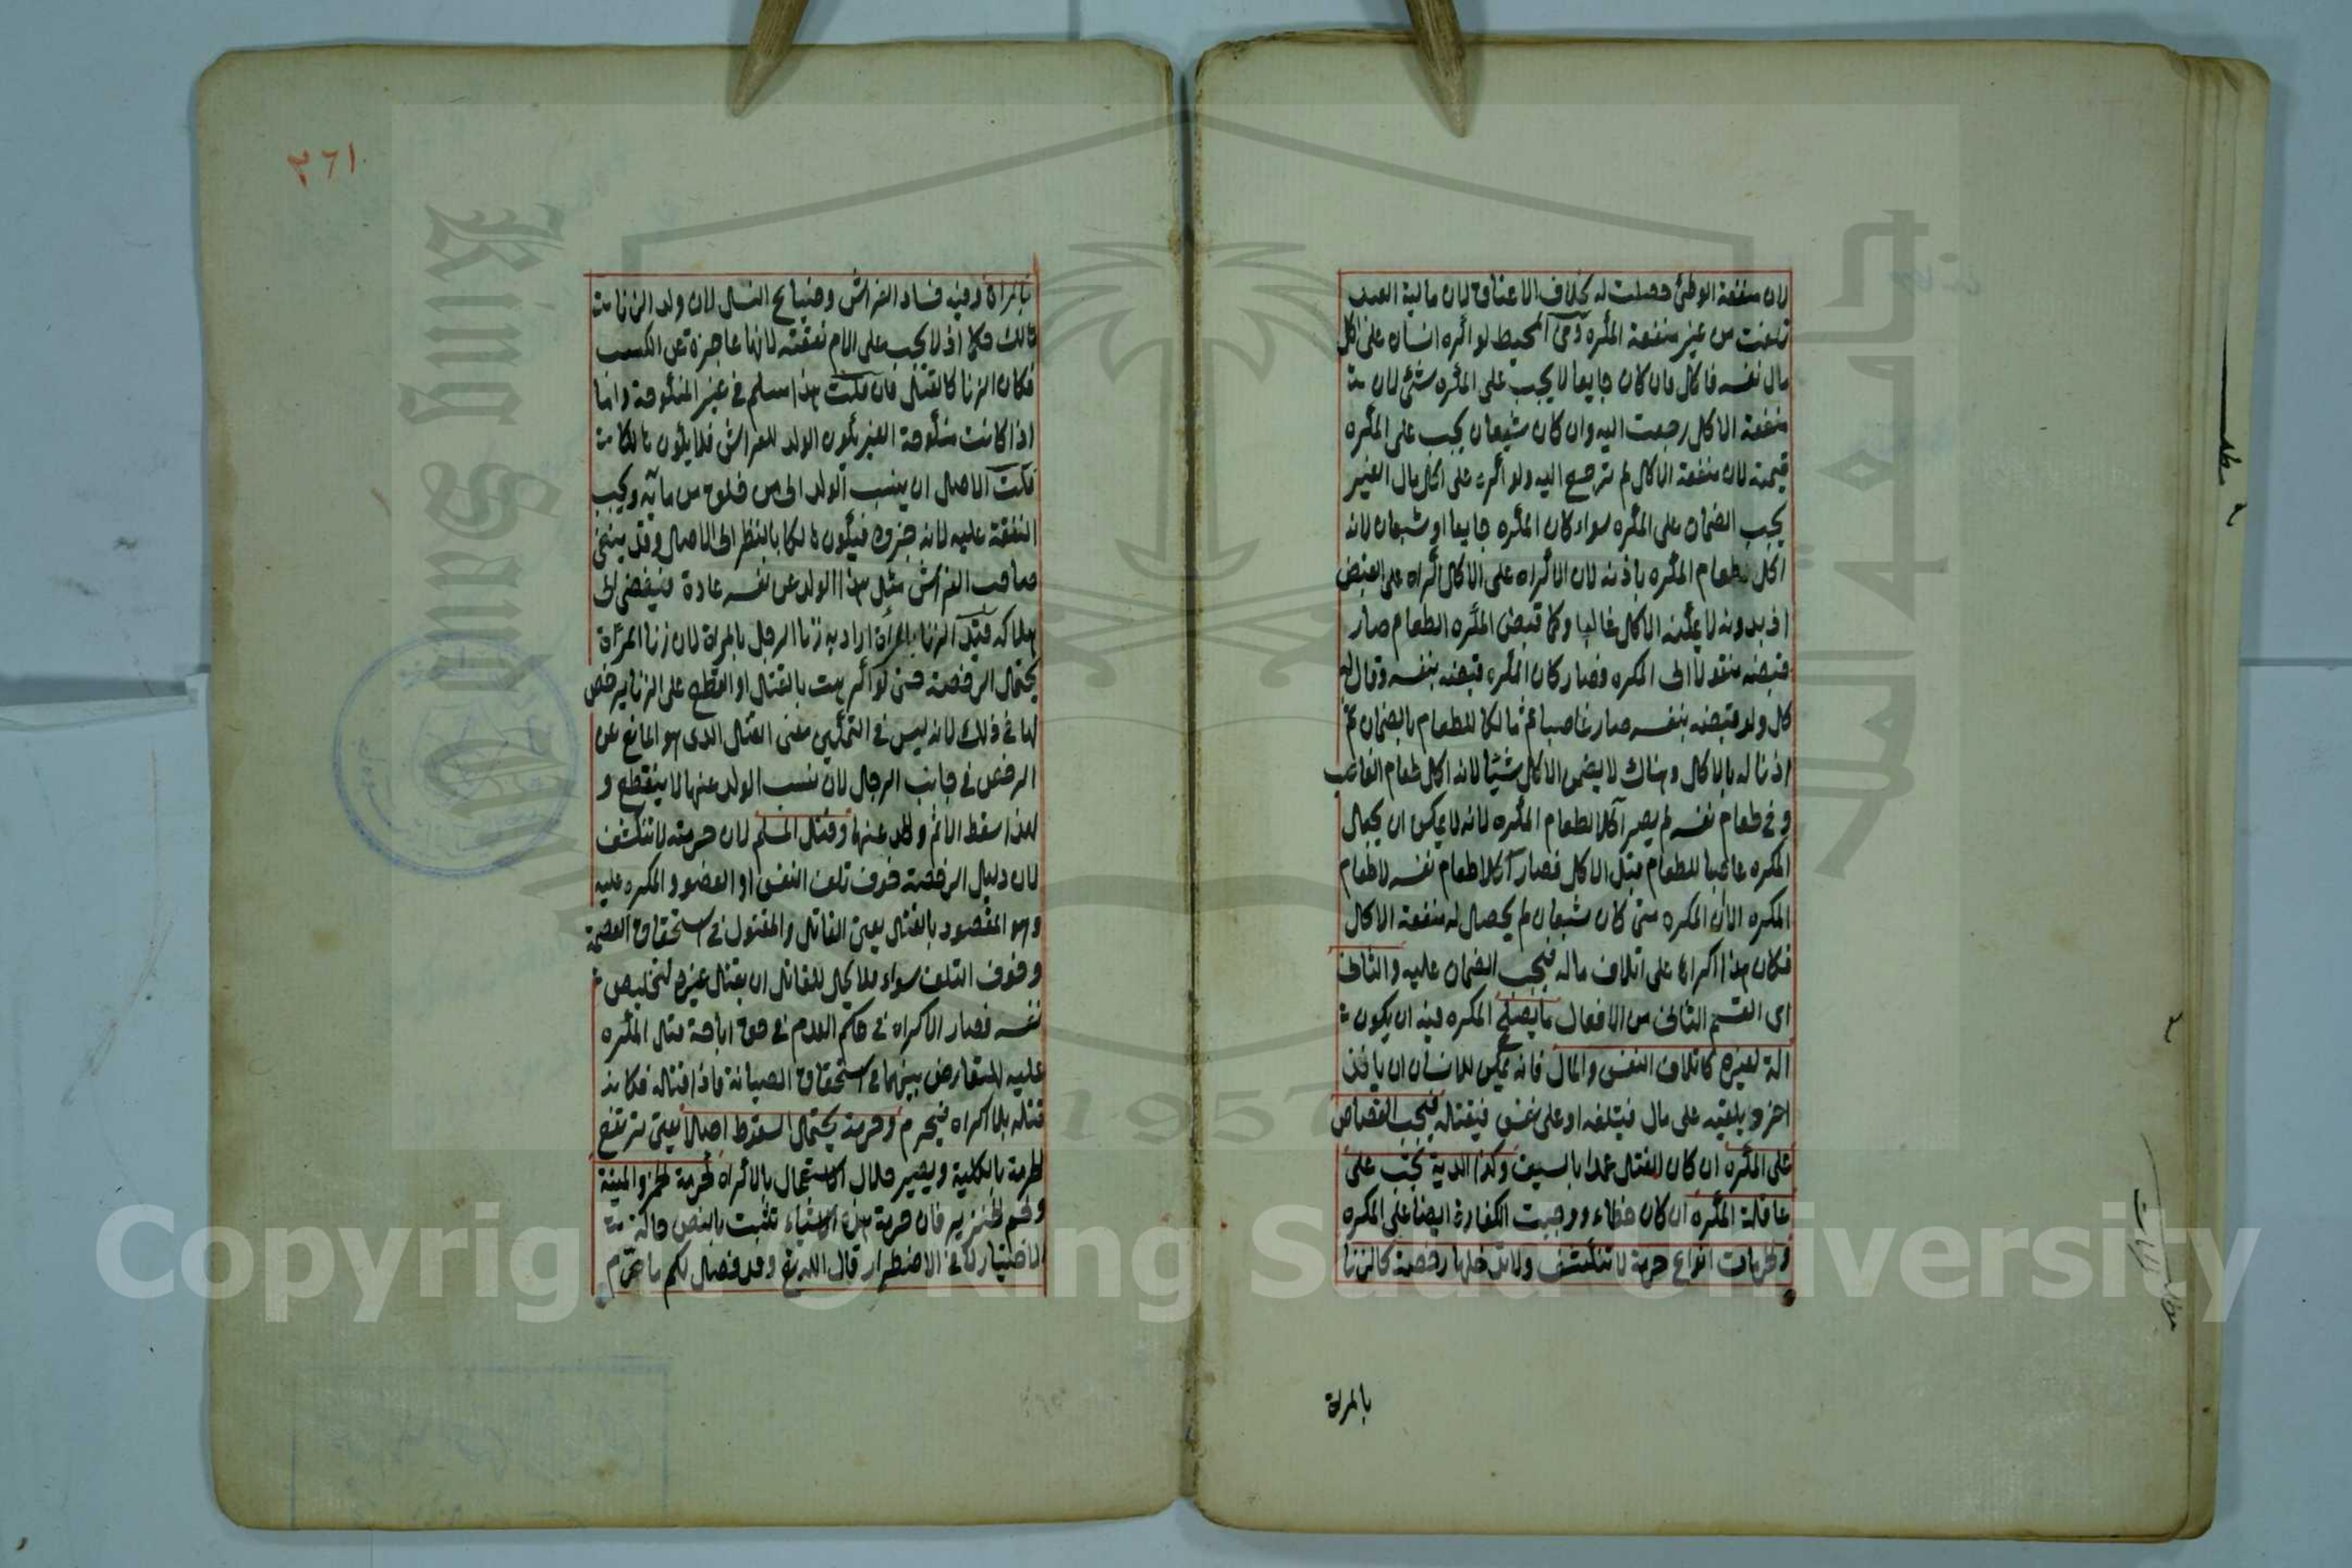 لان منفعة الوطئ حصلت له بخلاف الاعتاق لان مالية العبد
تلفت من غير منفعة المكره وفى المحيط لو اكره انسان على اكل
مال نفسه فاكل فان كان جايعا لا يجب على المكره شئ لان
منفعة الاكل رجعت اليه وان كان شبعان يجب على المكره
قيمته لان منفعة الاكل لم ترجع اليه ولو اكره على اكل مال الغير
يجب الضمان على المكره سواء كان المكره جايعا او شبعان لانه
اكل طعام المكره باذنه لان الاكراه على الاكل اكراه على القبض
اذ بدونه لا يمكنه الاكل غالبا وكما قبض المكره الطعام صار
قبضه منقولا الى المكره فصار كان المكره قبضه بنفسه وقال له
كل ولو قبضه بنفسه صار غاصبا ثم مالكا للطعام بالضمان ثم
اذنا له بالاكل وهناك لا يضمن الاكل شيئا لانه اكل طعام الغاصب
وفى طعام نفسه لم يصر آكلا لطعام المكره لانه لا يمكن ان يجعل
المكره غاصبا للطعام قبل الاكل فصار آكلا طعام نفسه لا طعام
المكره الا ان المكره متى كان شبعان لم يحصل له منفعة الاكل
فكان هذا اكراها على اتلاف ماله فيجب الضمان عليه والثانى
اى القسم الثانى من الافعال ما يصلح المكره فيه ان يكون
الة لغيره كاتلاف النفس والمال فانه يمكن للانسان ان ياخذ
اخر ويلقيه على مال فيتلفه او على نفس فيقتله فيجب القصاص
على المكره ان كان القتل عمدا بالسيف وكذا الدية تجب على
عاقلة المكره ان كان خطاء ووجبت الكفارة ايضا على المكره
والحرمات انواع حرمة لا تنكشف ولا تدخلها رخصة كالزنا
بالمراة
٣٦١
بالمراة وفيه فساد الفراش وضياع النسل لان ولد الزنا
هالك حكما اذ لا يجب على الام نفقته لانها عاجزة عن الكسب
فكان الزنا كالقتل فان قلت هذا مسلم فى غير المنكوحة واما
اذا كانت منكوحة الغير يكون الولد للفراش فلا يكون هالكا
قلت الاصل ان ينسب الولد الى من خلق من مائه ويجب
النفقة عليه لانه جزؤه فيكون هالكا بالنظر الى الاصل وقد ينفى
صاحب الفراش مثل هذا الولد عن نفسه عادة فيفضى الى
هلاكه قيد الزنا بالمراة اراد به زنا الرجل بالمراة لان زنا المراة
يحتمل الرخصة حتى لو اكرهت بالقتل او القطع على الزنا يرخص
لها فى ذلك لانه ليس فى التمكين معنى القتل الذى هو المانع عن
الرخص فى جانب الرجال لان نسب الولد عنها لا ينقطع و
لهذا سقط الاثم والحد عنها وقتل المسلم لان حرمته لا تنكشف
لان دليل الرخصة خوف تلف النفس او العضو والمكره عليه
وهو المقصود بالقتل يعنى القاتل والمقتول فى استحقاق العصمة
وخوف التلف سواء فلا يحل للقاتل ان يقتل غيره لتخليص
نفسه فصار الاكراه فى حكم العدم فى حق اباحة قتل المكره
عليه للتعارض بينهما فى استحقاق الصيانة فاذا قتله فكانه
قتله بلا اكراه فيحرم وحرمة يحتمل السقوط اصلا يعنى ترتفع
الحرمة بالكلية ويصير حلال الاستعمال بالاكراه كحرمة الخمر والميتة
ولحم الخنزير فان حرمة هذه الاشياء تثبت بالنص حالة
الاختيار لا فى الاضطرار قال الله تع وقد فصل لكم ما حرم
Copyright © King Saud University
1957